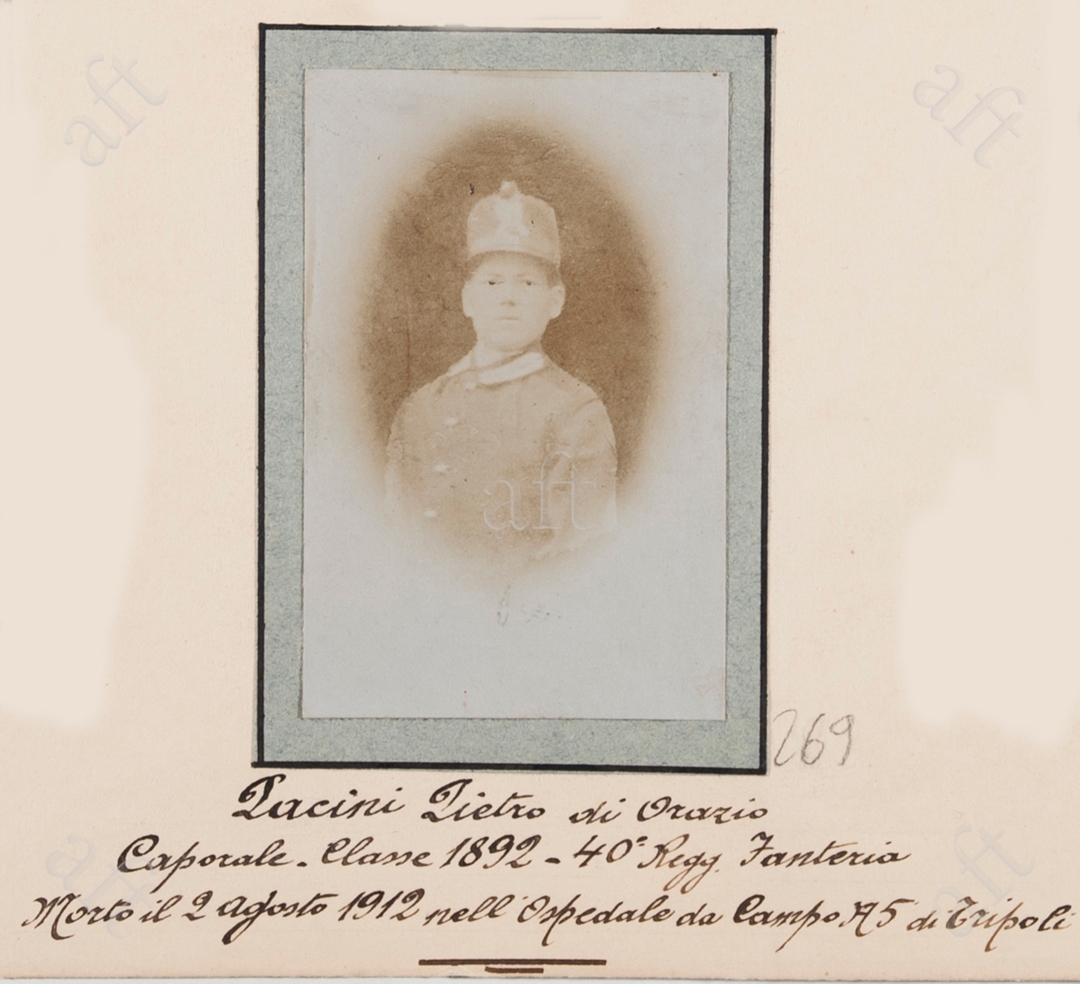 aft
aft
aft
269
Pacini Pietro di Orazio
Caporale - Classe 1892 - 40° Regg. Fanteria
Morto il 2 agosto 1912 nell'Ospedale da Campo N 5 di Tripoli
aft
aft